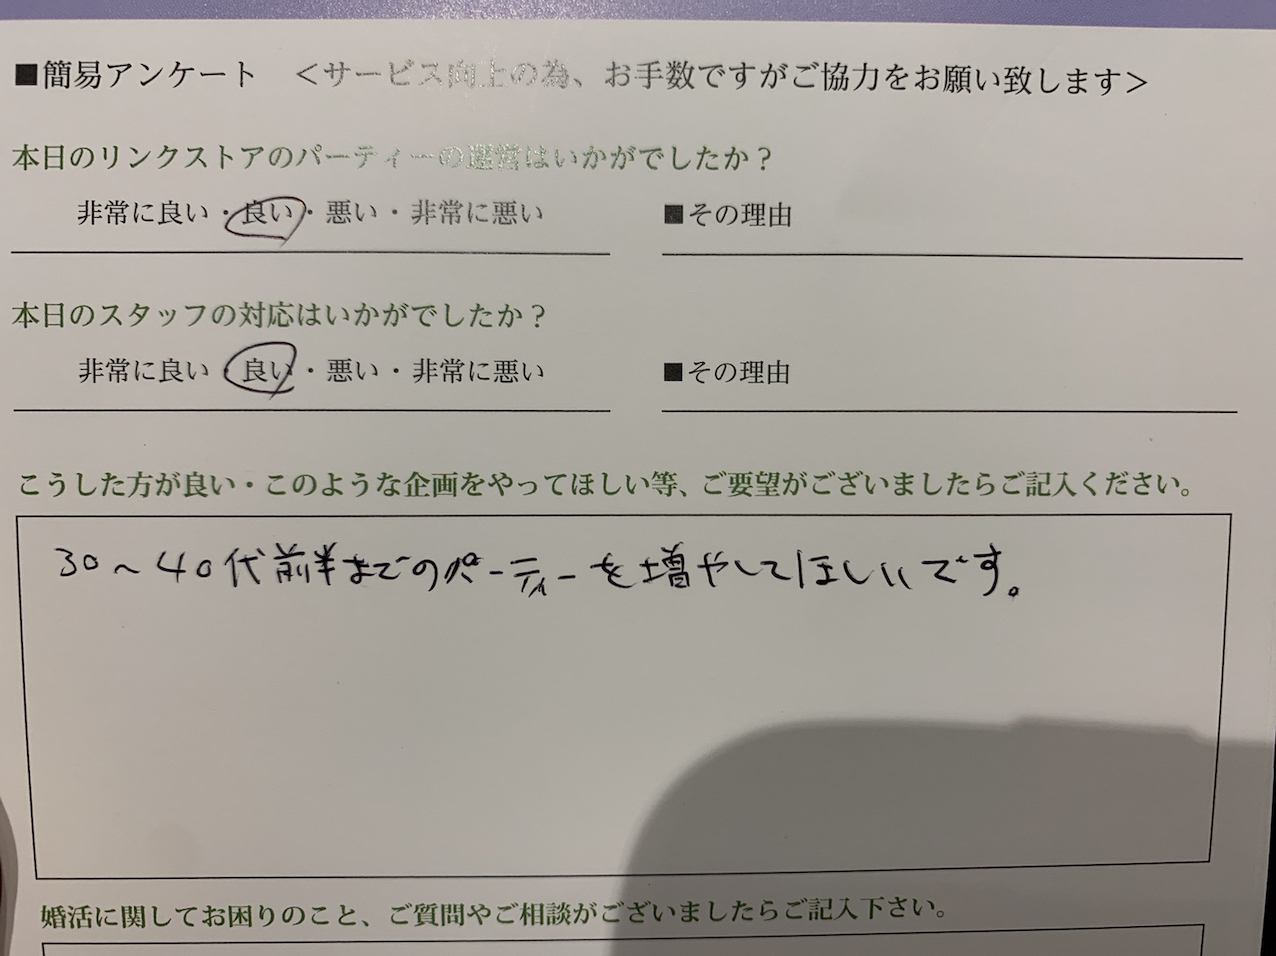 ■簡易アンケート　＜サービス向上の為、お手数ですがご協力をお願い致します＞
本日のリンクストアのパーティーの運営はいかがでしたか？
非常に良い・良い・悪い・非常に悪い　■その理由
本日のスタッフの対応はいかがでしたか？
非常に良い・良い・悪い・非常に悪い　■その理由
こうした方が良い・このような企画をやってほしい等、ご要望がございましたらご記入ください。
30〜40代前半までのパーティーを増やしてほしいです。
婚活に関してお困りのこと、ご質問やご相談がございましたらご記入下さい。